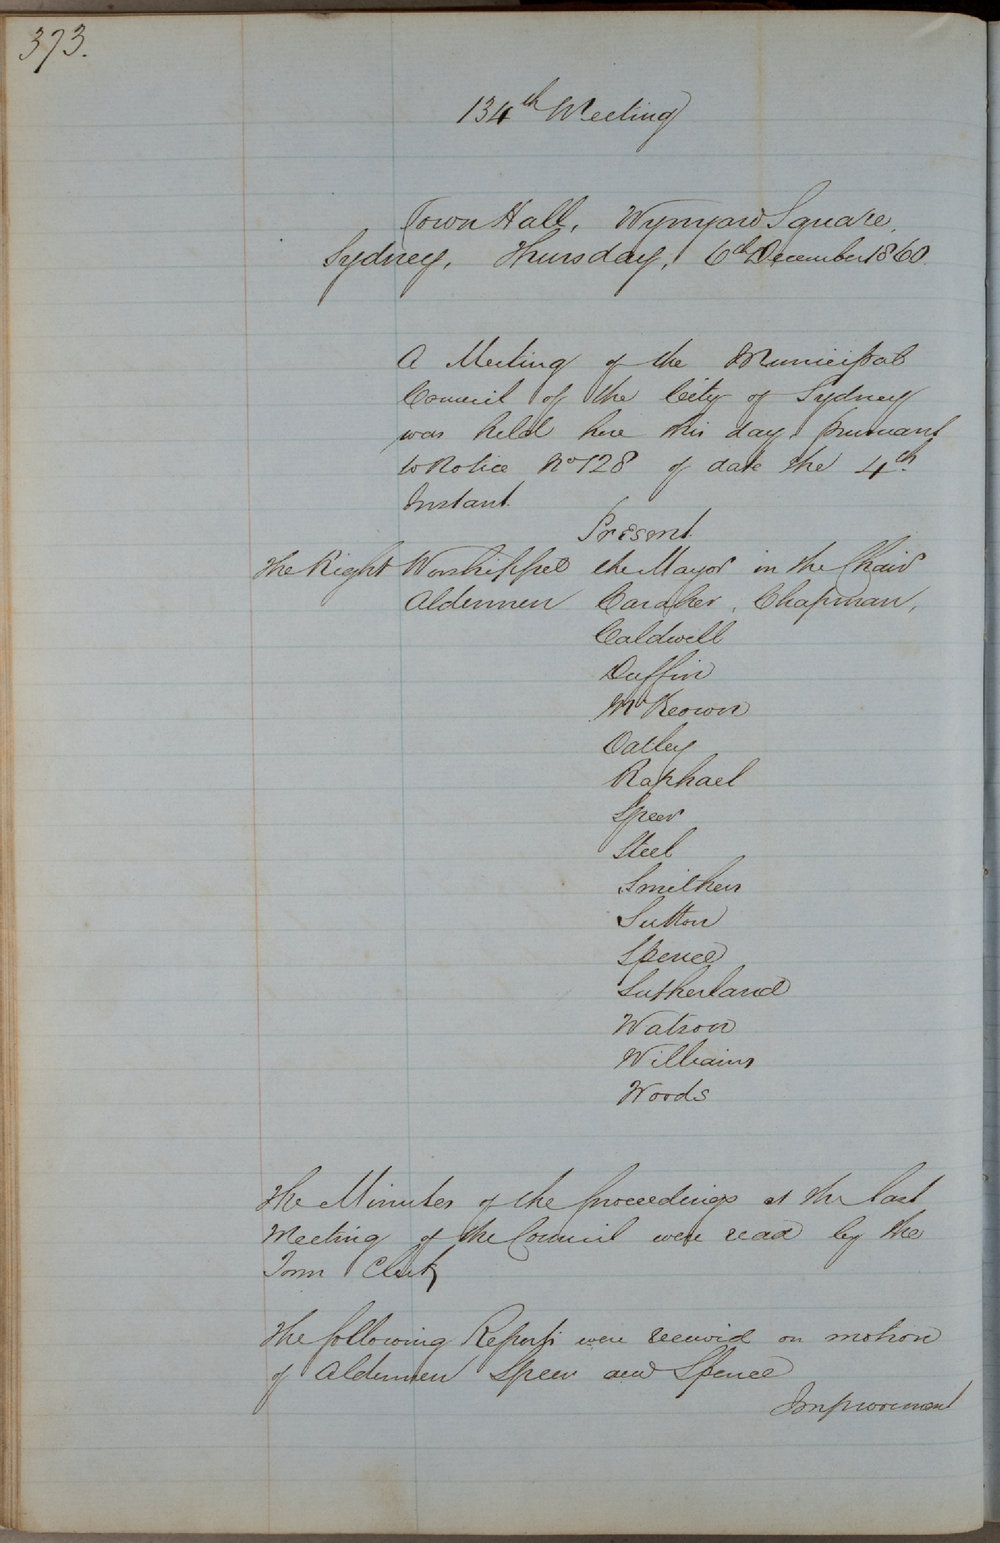 373.
134th Meeting
Town Hall, Wynyard Square,
Sydney, Thursday, 6th December 1860.
A Meeting of the Municipal
Council of the City of Sydney
was held here this day pursuant
to Notice No 128 of date the 4th
Instant.
Present
The Right Worshipful the Mayor in the Chair
Aldermen Caraher, Chapman,
Caldwell
Duffin
McKeown
Oatley
Raphael
Speer
Steel
Smithers
Sutton
Spence
Sutherland
Watson
Williams
Woods
The Minutes of the proceedings at the last
Meeting of the Council were read by the
Town Clerk
The following Reports were received on motion
of Aldermen Speer and Spence
Improvement